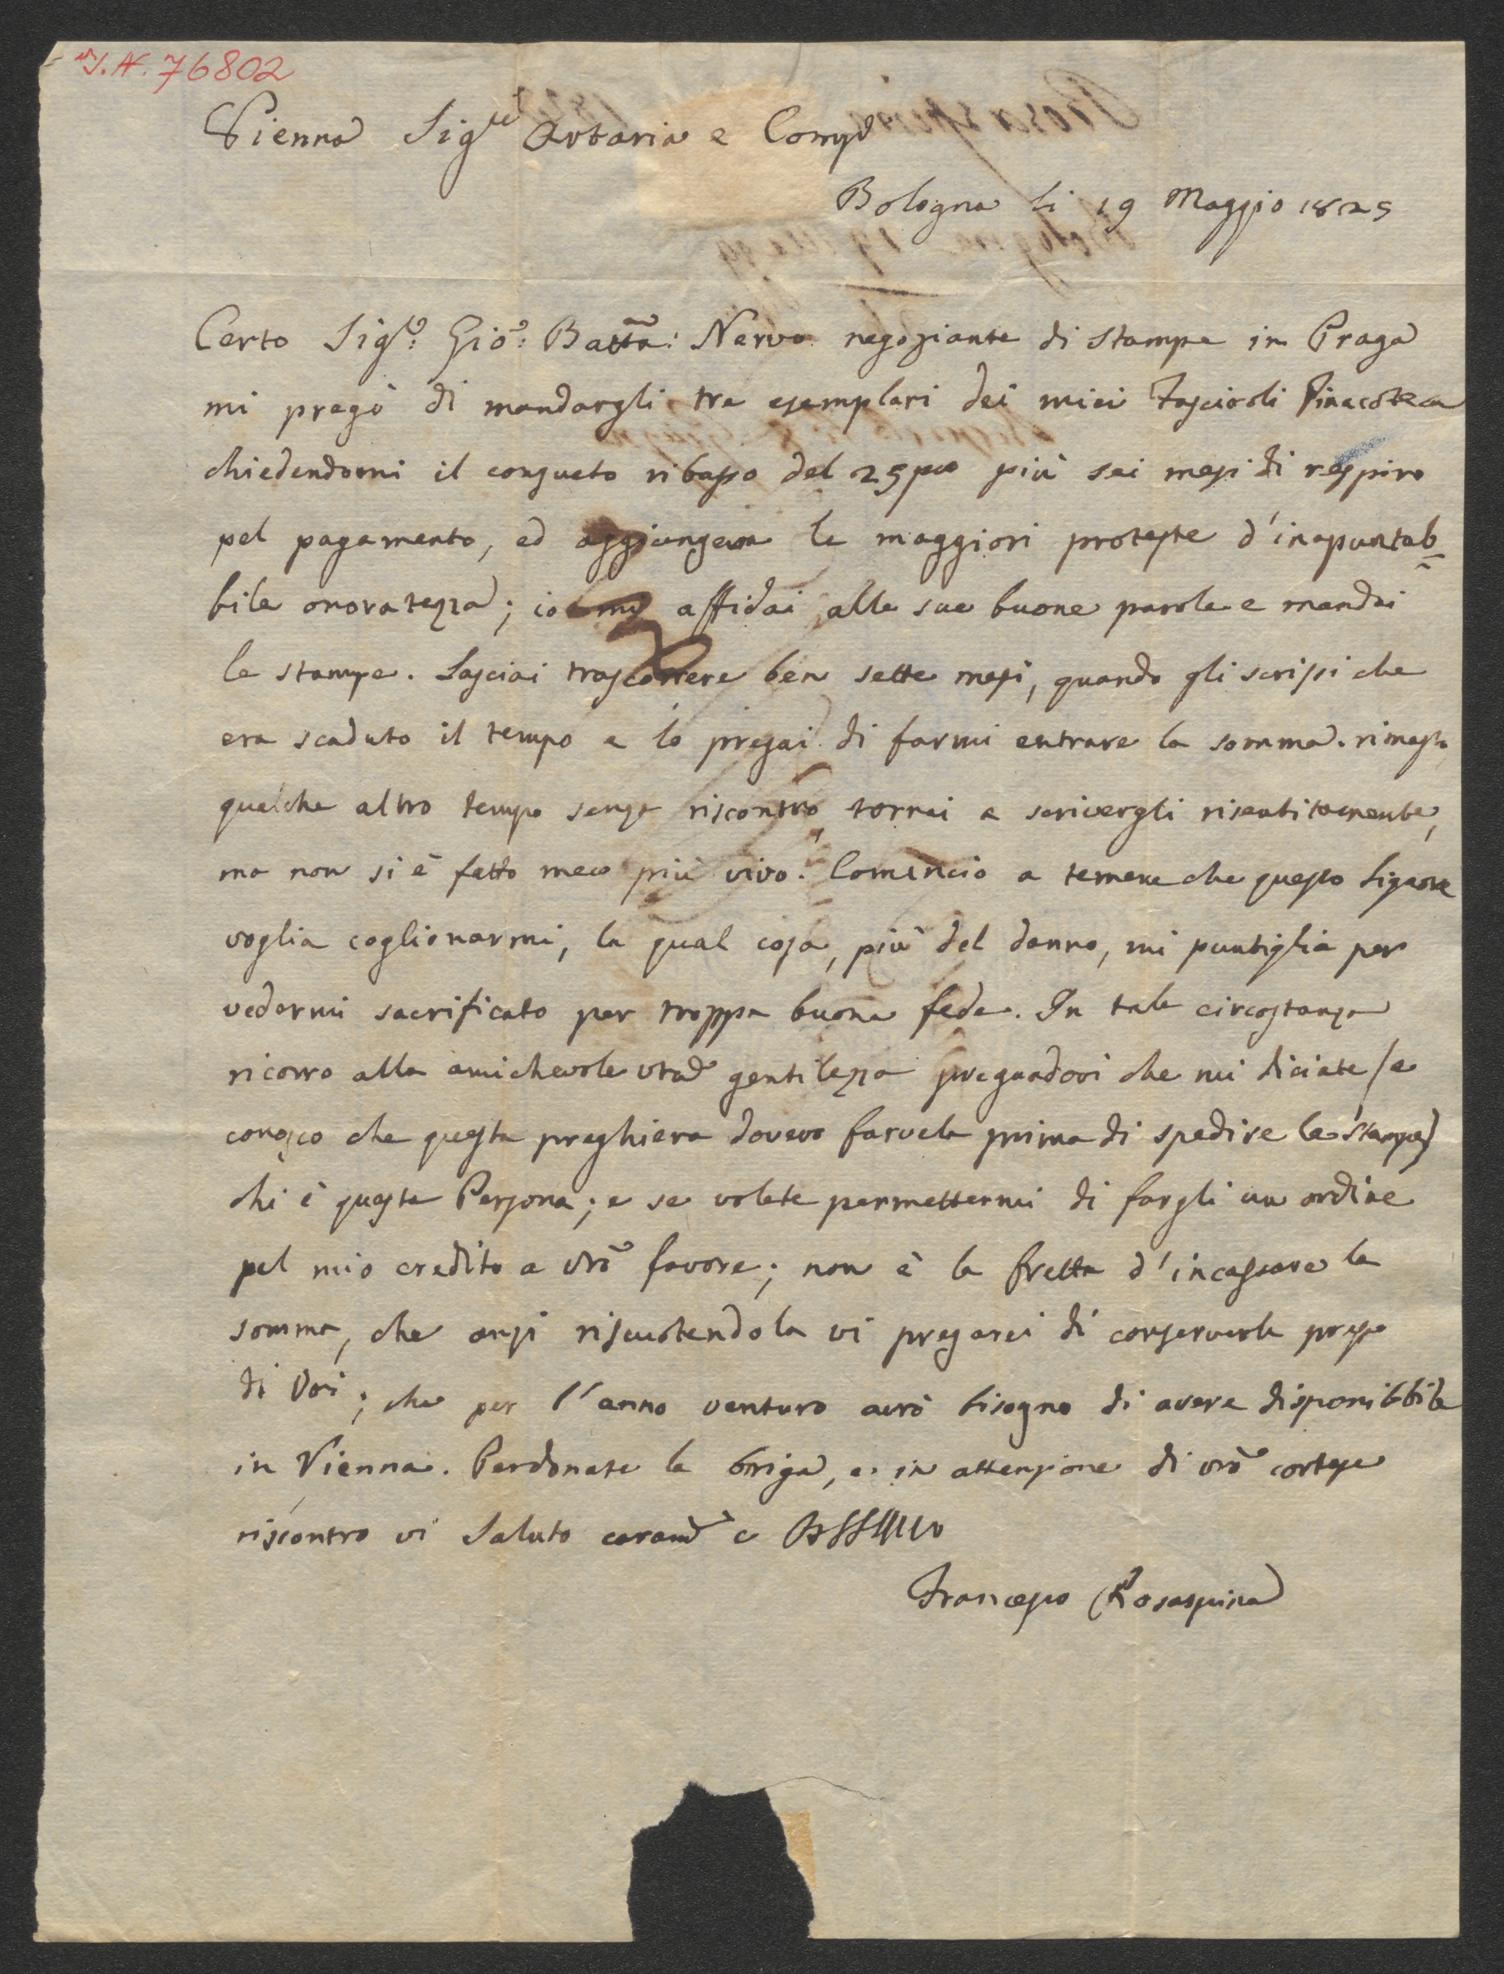 I.N. 76802
Vienna Sig.ri Artaria e Comp.
Bologna li 19 Maggio 1825
Certo Sig.e: Gio: Batta: Nervo negoziante di stampe in Praga
mi pregò di mandargli tre esemplari dei miei Fascicoli Pinacoteca
chiedendomi il consueto ribasso del 25 pco più sei mesi di respiro
pel pagamento, ed aggiungeva le maggiori proteste d'inapuntab=
bile onoratezza; io mi affidai alle sue buone parole e mandai
le stampe. Lasciai trascorrere ben sette mesi, quando gli scrissi che
era scaduto il tempo e lo pregai di farmi entrare la somma. rimasto
qualche altro tempo senza riscontro, tornai a scrivergli risentitamente,
ma non si è fatto meco più vivo. Comincio a temere che questo Signore
voglia coglionarmi, la qual cosa, più del danno, mi puntiglia per
vedermi sacrificato per troppa buona fede. In tale circostanza
ricorro alla amichevole vtra gentilezza pregandovi che mi diciate (e
conosco che questa preghiera dovevo farvela prima di spedire le stampe)
chi è questa Persona; e se volete permettermi di fargli un ordine
pel mio credito a vro favore; non è la fretta d'incassare la
somma, che anzi riscuotendola vi pregarei di conservarla presso
di Voi; che per l'anno venturo avrò bisogno di avere disponibbile
in Vienna. Perdonate la briga, e in attenzione di vro cortese
riscontro vi saluto caram.e e
Francesco Rosaspina